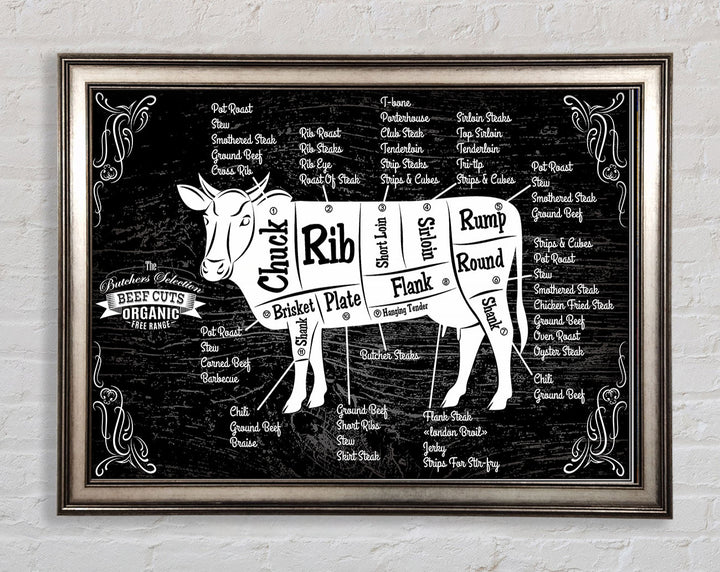 T-bone
Porterhouse
Club Steak
Tenderloin
Strip Steaks
Strips & Cubes
Pot Roast
Stew
Smothered Steak
Ground Beef
Cross Rib
Rib Roast
Rib Steaks
Rib Eye
Roast Of Steak
Sirloin Steaks
Top Sirloin
Tenderloin
Tri-tip
Strips & Cubes
Pot Roast
Stew
Smothered Steak
Ground Beef
① Chuck
② Rib
③ Short Loin
④ Sirloin
⑤ Rump
Round ⑥
Shank ⑦
Flank ⑧
⑨ Hanging Tender
Plate ⑩
Brisket
Shank
Strips & Cubes
Pot Roast
Stew
Smothered Steak
Chicken Fried Steak
Ground Beef
Oven Roast
Oyster Steak
The
Butchers Selection
BEEF CUTS
ORGANIC
FREE RANGE
Pot Roast
Stew
Corned Beef
Barbecue
Butcher Steaks
Chili
Ground Beef
Chili
Ground Beef
Braise
Ground Beef
Short Ribs
Stew
Skirt Steak
Flank Steak
«london Broil»
Jerky
Strips For StIr-fry